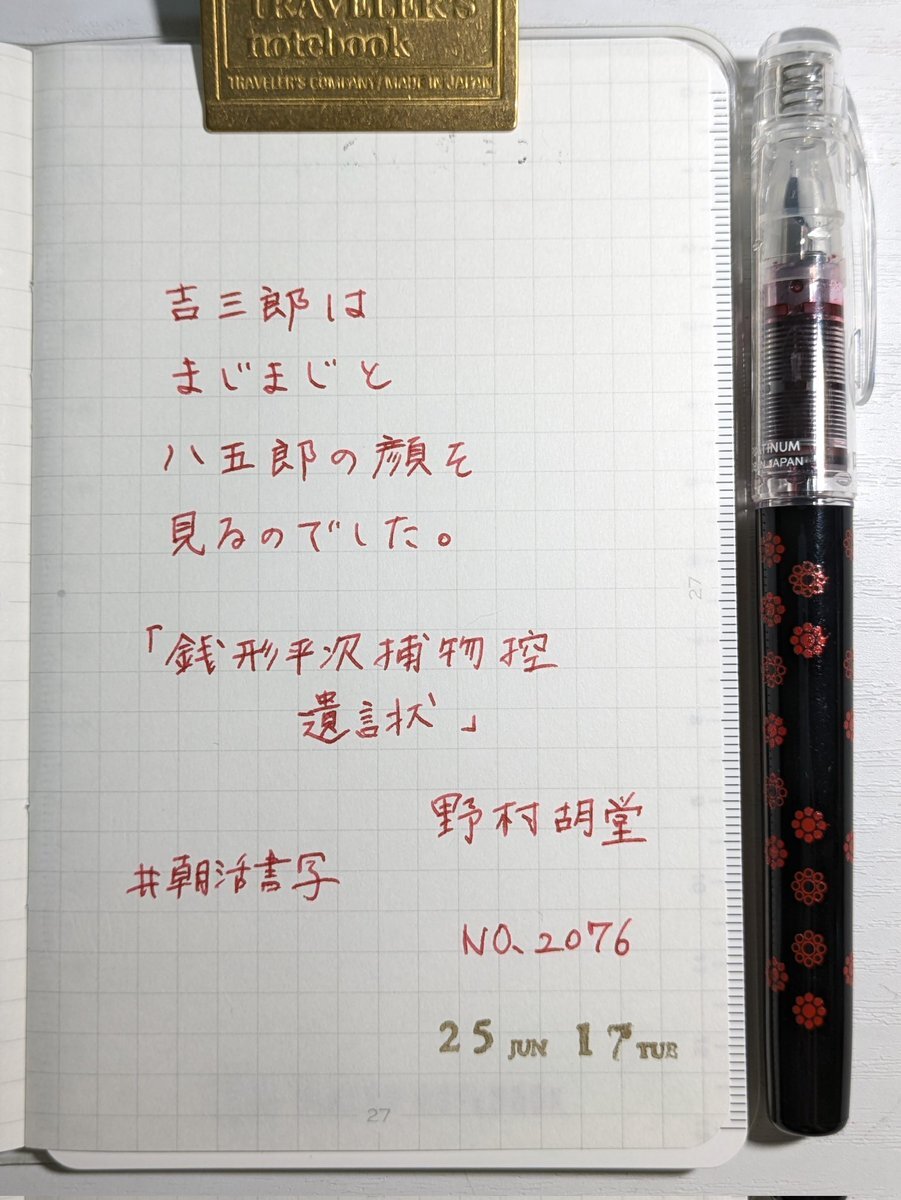 TRAVELER'S
notebook
TRAVELER'S COMPANY/MADE IN JAPAN
吉三郎は
まじまじと
八五郎の顔を
見るのでした。
「銭形平次捕物控
遺言状」
野村胡堂
#朝活書写
NO.2076
25 JUN 17 TUE
27
27
JAPAN